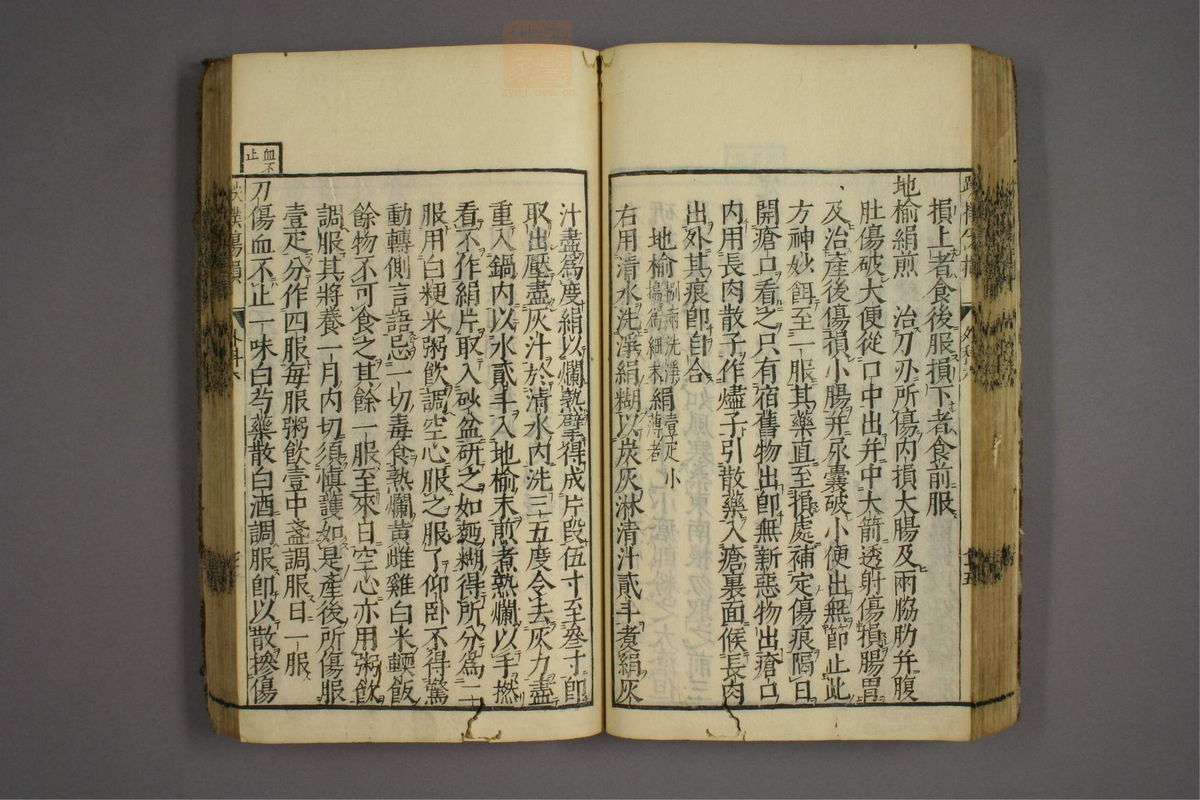 損上者食後服損下者食前服
地榆絹煎 治刀斧所傷內損大腸及兩脇肋并腹
肚傷破大便從口中出并中大箭透射傷損腸胃
及治產後傷損小腸并尿囊破小便出無節止此
方神妙餌至一服其藥直至損處補定傷痕隔日
開瘡口看之只有宿舊物出卽無新惡物出瘡口
內用長肉散子作燼子引散藥入瘡裏面候長肉
出外其痕卽自合
地榆捌兩洗淨搗爲細末 絹壹疋小薄者
右用清水洗淨絹糊以炭灰淋清汁貳斗煮絹灰
汁盡爲度絹以爛熟擘得成片段伍寸至叄寸卽
取出壓盡灰汁於清水內洗三五度令去灰力盡
重入鍋內以水貳斗入地榆末煎煮熟爛以手撚
看不作絹片取入砂盆研之如麵糊得所分爲二
服用白粳米粥飲調空心服之服了仰卧不得驚
動轉側言語忌一切毒食熟爛黃雌雞白米輭飯
餘物不可食之其餘一服至來日空心亦用粥飲
調服其將養一月內切須愼護如是產後所傷服
壹疋分作四服每服粥飲壹中盞調服日一服
血不止
刀傷血不止一味白芍藥散白酒調服卽以散摻傷
跌撲傷損 外科六